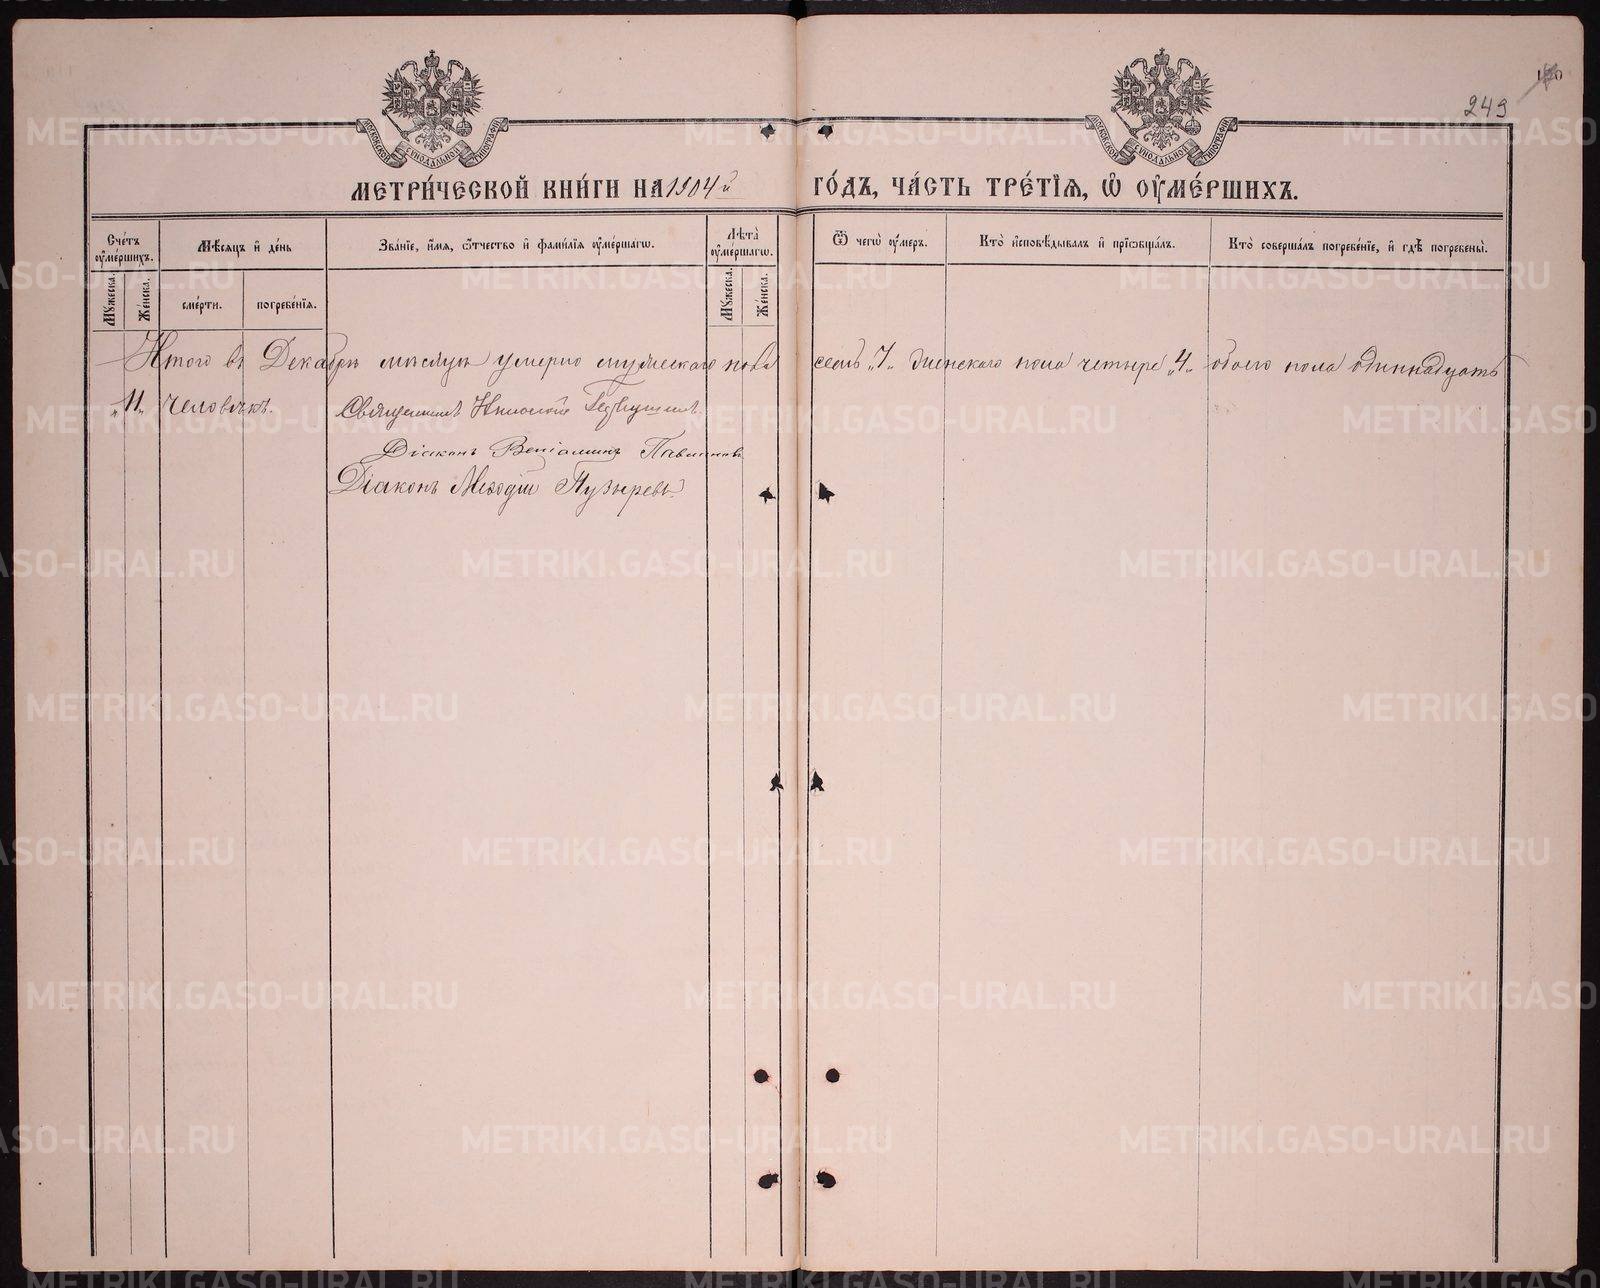 249
МОСКОВСКОЙ СѴНОДАЛЬНОЙ ТИПОГРАФІИ
МОСКОВСКОЙ СѴНОДАЛЬНОЙ ТИПОГРАФІИ
МЕТРИ́ЧЕСКОЙ КНИ́ГИ НА 1904й ГО́ДЪ, ЧА́СТЬ ТРЕ́ТІѦ, Ѡ҆ ОУ҆МЕ́РШИХЪ.
Сче́тъ оу҆ме́ршихъ.
Мѣ́сѧцъ и҆ де́нь
Зва́нїе, и҆́мѧ, ѻ҆́тчество и҆ фами́лїѧ оу҆ме́ршагѡ.
Лѣ́та оу҆ме́ршагѡ.
Ѿ чегѡ̀ оу҆́меръ.
Кто̀ и҆сповѣ́дывалъ и҆ прїѡбща́лъ.
Кто̀ соверша́лъ погребе́нїе, и҆ гдѣ̀ погребены̀.
Мꙋ́жеска.
Же́нска.
сме́рти.
погребе́нїѧ.
Мꙋ́жеска.
Же́нска.
Итого въ Декабрѣ мѣсяцѣ умерло мужескаго пола семь „7„ женскаго пола четыре „4„ обоего пола одиннадцать
„11„ человѣкъ.
Священникъ Николай
Діаконъ Веніаминъ Павлиновъ
Діаконъ Меѳодій Пузыревъ.
METRIKI.GASO-URAL.RU